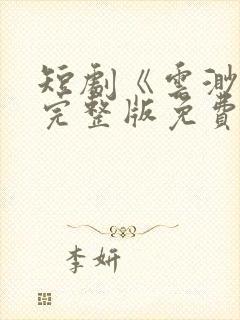 短劇《雲渺
完整版免費
李妍